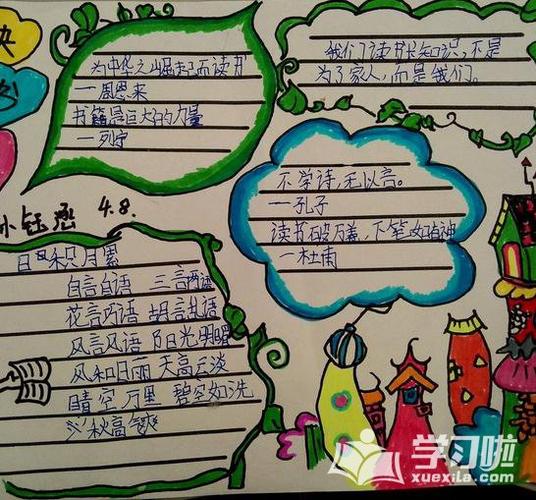 为中华之崛起而读书
一周恩来
书籍是巨大的力量
一列宁
我们读书长知识,不是
为了家人,而是我们。
不学诗,无以言。
一孔子
读书破万卷,下笔如有神
一杜甫
4.8.
日积月累
自言自语 三言两语
花言巧语 胡言乱语
风言风语 阳光明媚
风和日丽 天高云淡
晴空万里 碧空如洗
秋高气爽
学习啦
xuexila.com